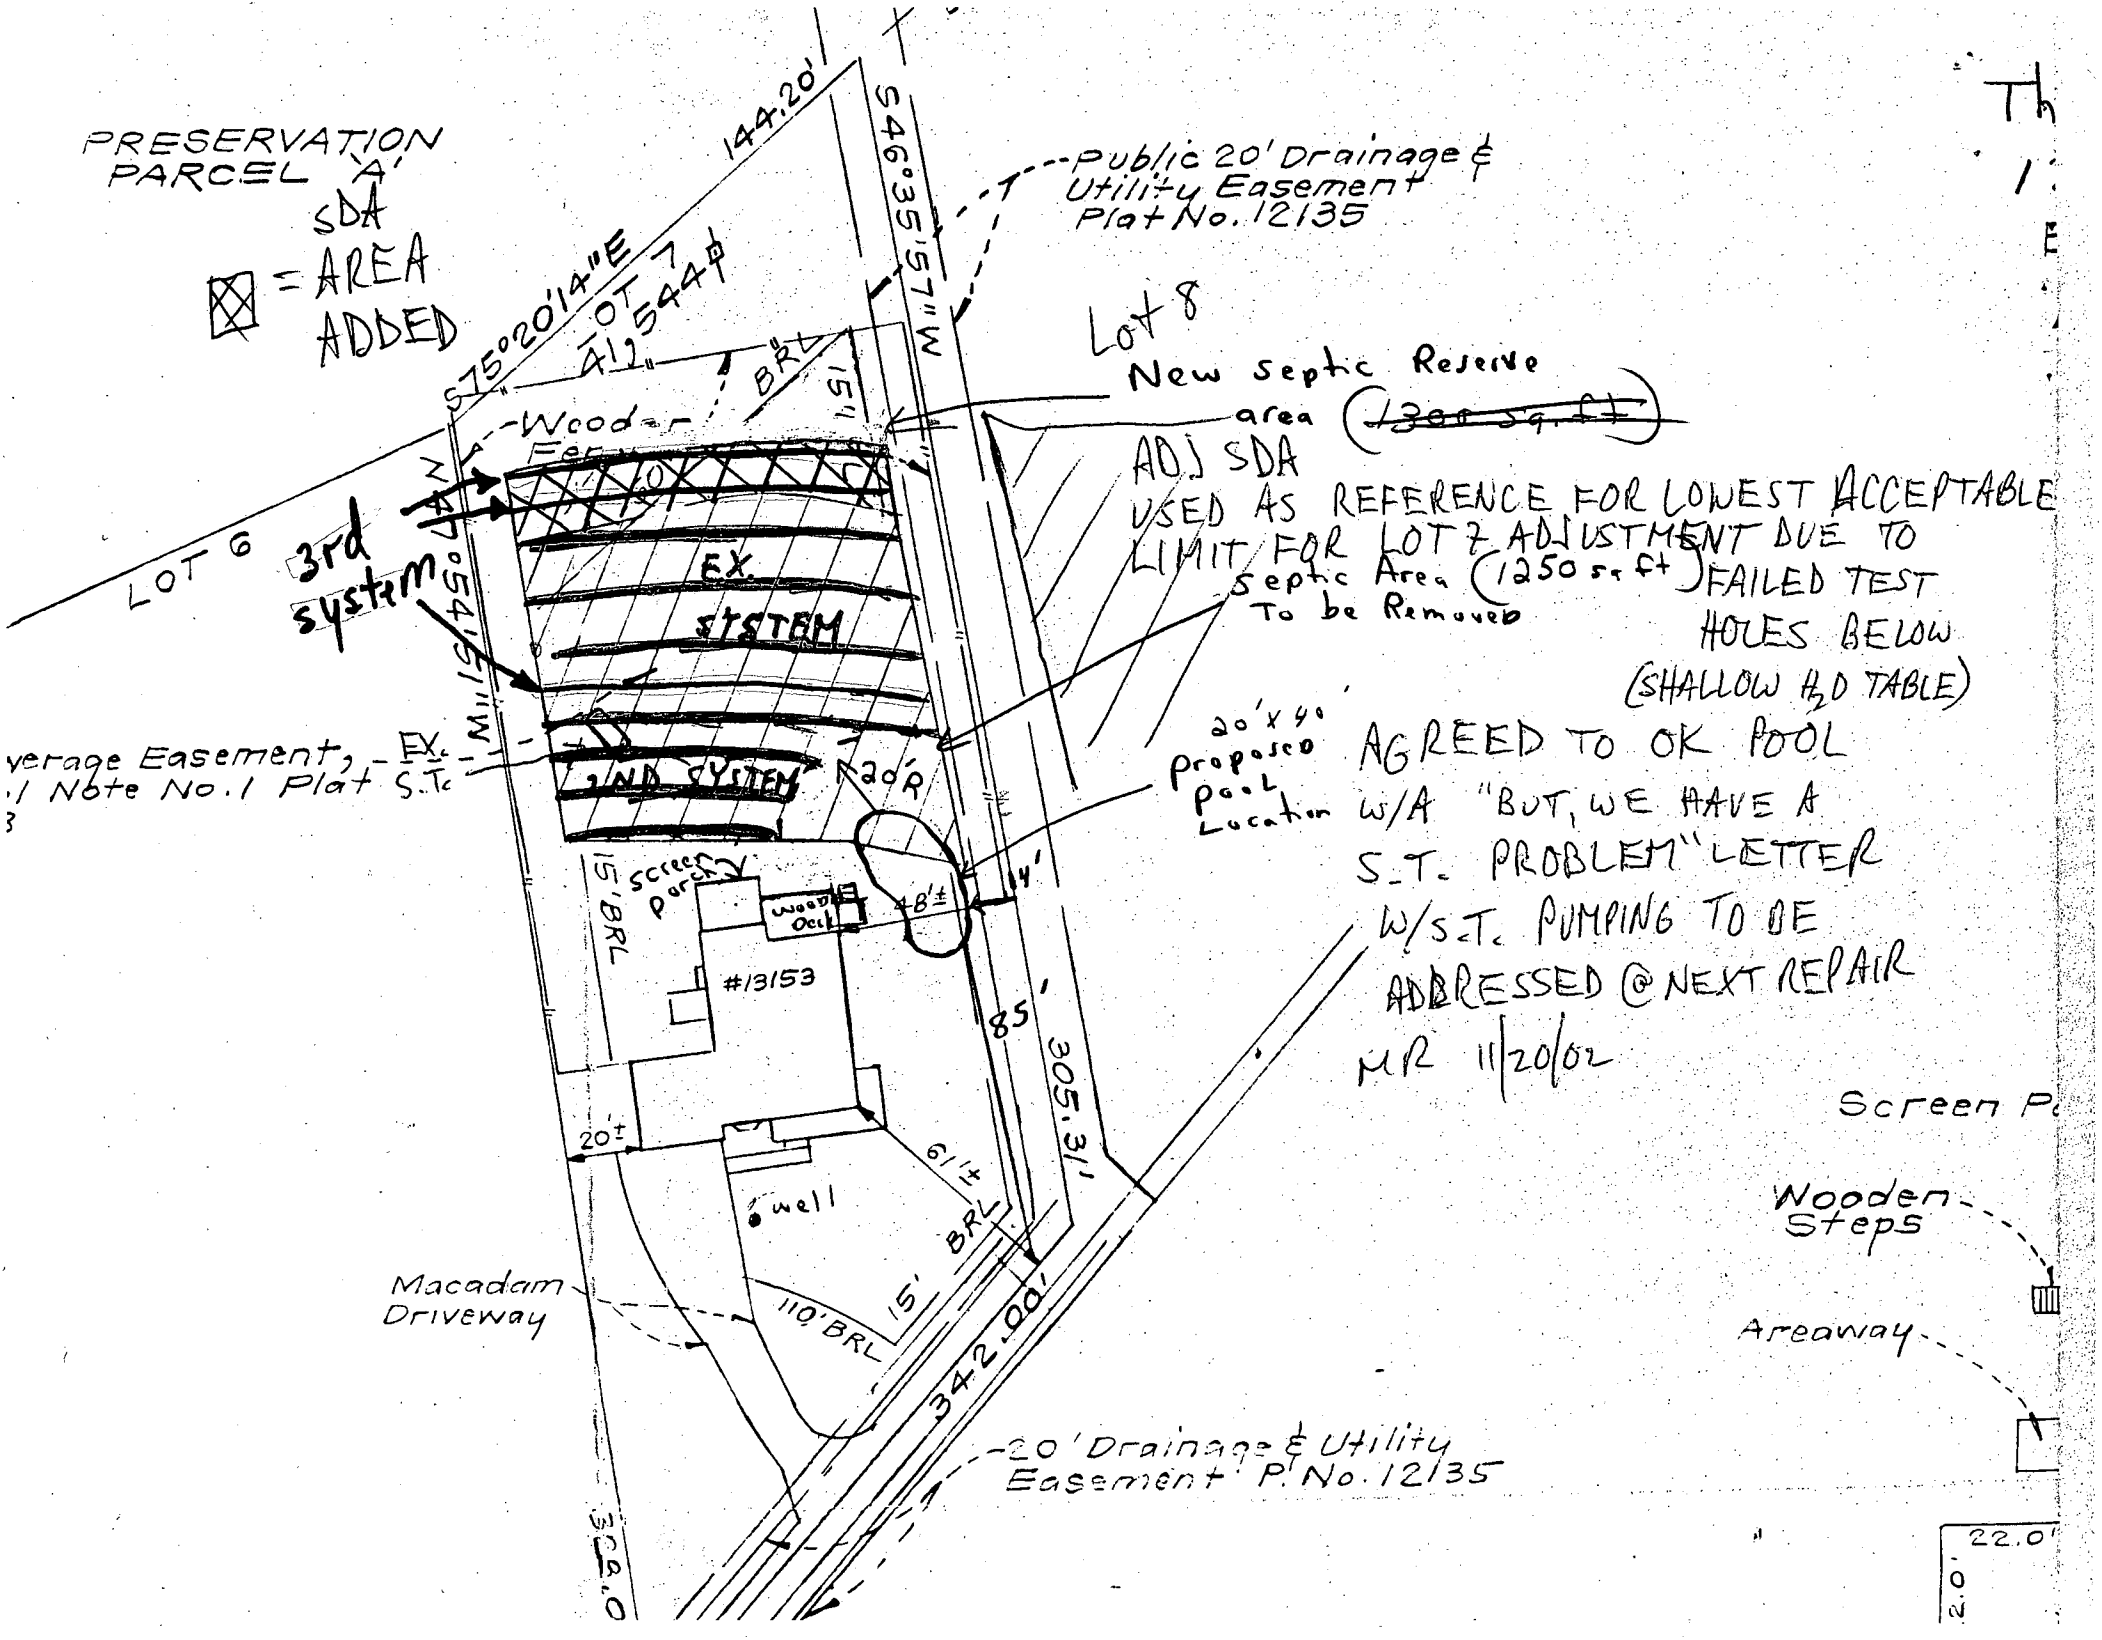 144.20'
S46°35'57"W
Th
PRESERVATION
PARCEL 'A'
SDA
= AREA
ADDED
Public 20' Drainage &
Utility Easement
Plat No. 12135
S75°20'14"E
LOT 7
Lot 8
BRL
15'
New septic Reserve
area (1300 sq. ft)
Wooden
ADJ SDA
USED AS REFERENCE FOR LOWEST ACCEPTABLE
LIMIT FOR LOT 7 ADJUSTMENT DUE TO
FAILED TEST
HOLES BELOW
(SHALLOW H2O TABLE)
septic Area (1250 sq ft)
To be Removed
LOT 6
3rd
system
N47°54'51"W
EX.
SYSTEM
2ND SYSTEM
20'R
verage Easement,
Note No. 1 Plat
EX.
S.T.
20' x 40'
Proposed
Pool
Location
AGREED TO OK POOL
W/A "BUT, WE HAVE A
S.T. PROBLEM" LETTER
W/S.T. PUMPING TO BE
ADDRESSED @ NEXT REPAIR
MR 11/20/02
15' BRL
screen
porch
wood
Deck
48'±
14'
#13153
85'
305.31'
20'±
61'±
well
BRL
15'
110' BRL
Macadam
Driveway
342.00'
20' Drainage & Utility
Easement P. No. 12135
Screen
Wooden
Steps
Areaway
22.0'
2.0'